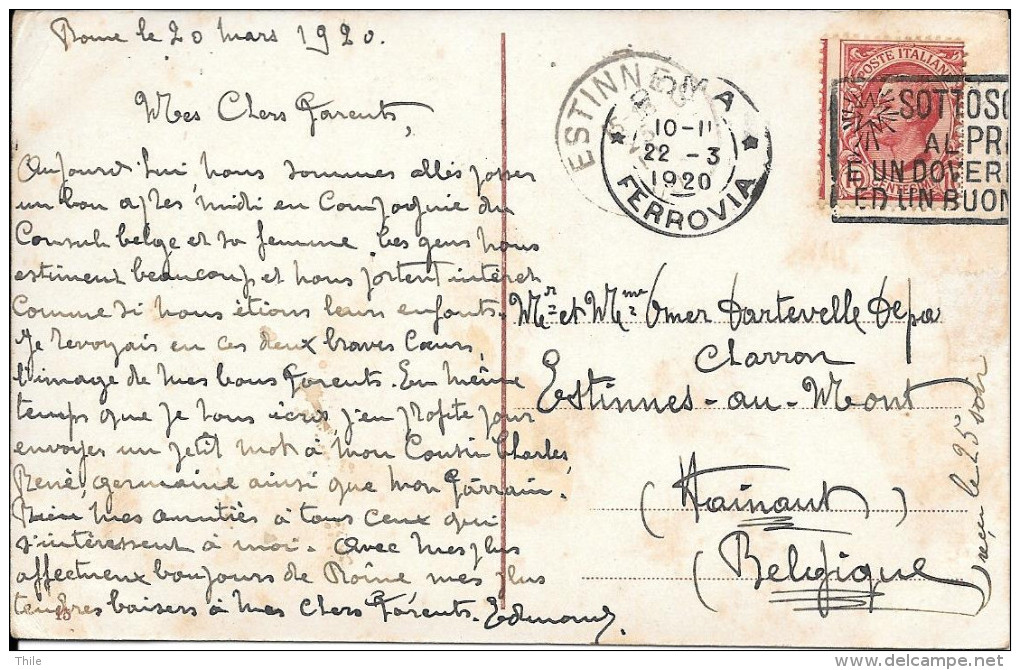 Rome le 20 mars 1920.
Mes Chers Parents,
Aujourd'hui nous sommes allés passer
un bon après midi en Compagnie du
Consul belge et sa femme. Ces gens nous
estiment beaucoup et nous portent intérêt
Comme si nous étions leurs enfants.
Je revoyais en ces deux braves Cœurs,
l'image de mes bons Parents. En même
temps que je vous écris j'en profite pour
envoyer un petit mot à mon Cousin Charles,
René, germaine ainsi que mon Parrain.
Bien mes amitiés à tous ceux qui
s'intéressent à moi. Avec mes plus
affectueux bonjours de Rome mes plus
tendres baisers à mes Chers Parents. Edmond.
15
ESTINNE
MA
10-11
22 - 3
1920
FERROVIA
POSTE ITALIANE
SOTTOSC
AL PRE
È UN DOVERE
ED UN BUON
Mr et Mme Omer Dartevelle Depa
Charron
Estinnes-au-Mont
(Hainaut)
(Belgique)
reçu le 25 soir
Thile
delcampe.net